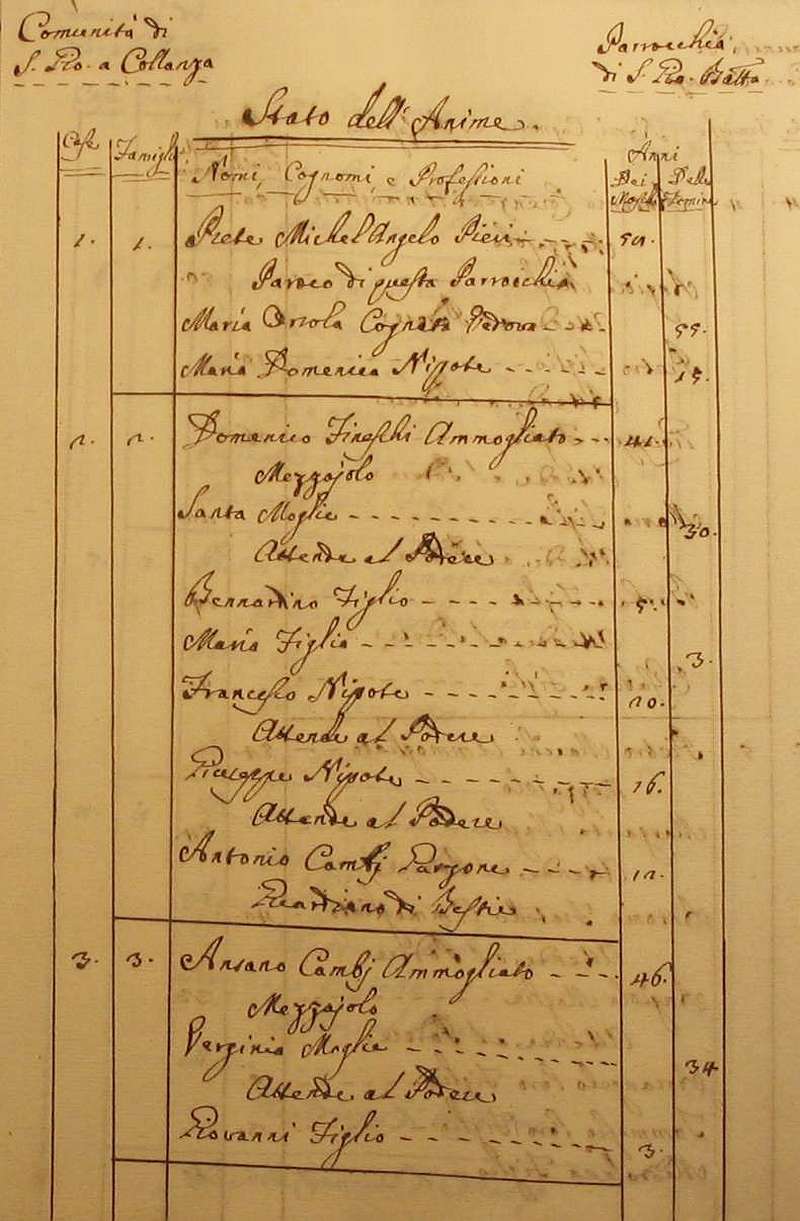 Comunità di
S. Gio. a Collanza
Parrocchia
di S. Gio. Batta
Stato dell'Anime.
Case
Famiglie
Nomi, Cognomi, e Professioni
Anni
Dei Maschi
Delle Femine
1. 1. Prete Michel'Angelo Pieri
Paroco di questa Parrocchia
Maria Orsola Cognata Vedova 55.
Maria Domenica Nipote 15.
2. 2. Domenico Fineschi Ammogliato 41.
Mezzajolo
Santa Moglie 30.
Attende al Podere
Bernardino Figlio
Maria Figlia 3.
Francesco Nipote 20.
Attende al Podere
Giuseppe Nipote 16.
Attende al Podere
Antonio Cambj Garzone 12.
Guardiano di Bestie
3. 3. Ansano Cambj Ammogliato 46.
Mezzajolo
Verginia Moglie 34
Attende al Podere
Giovanni Figlio 3.